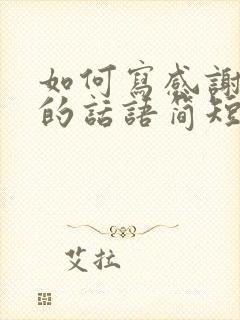 如何寫感謝
的話語简短
艾拉